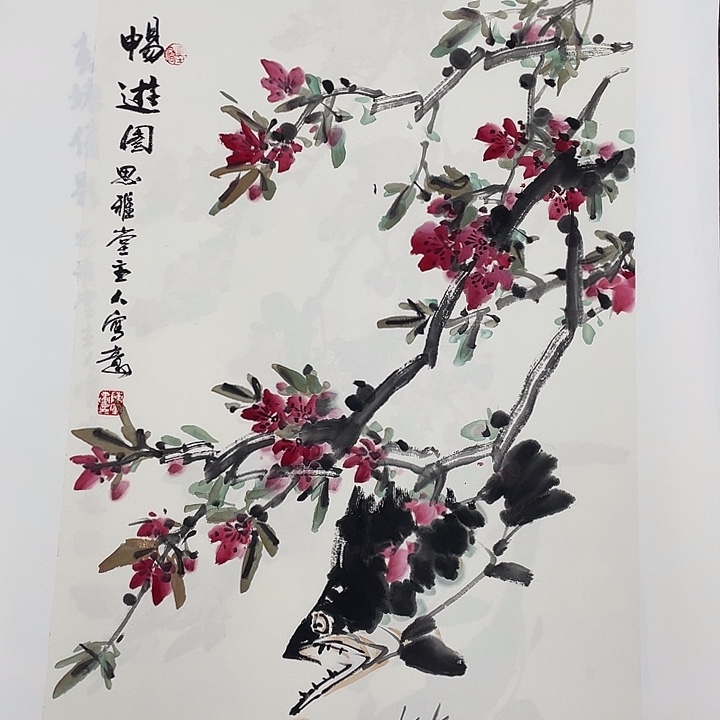 暢遊图思雅堂主人寫意